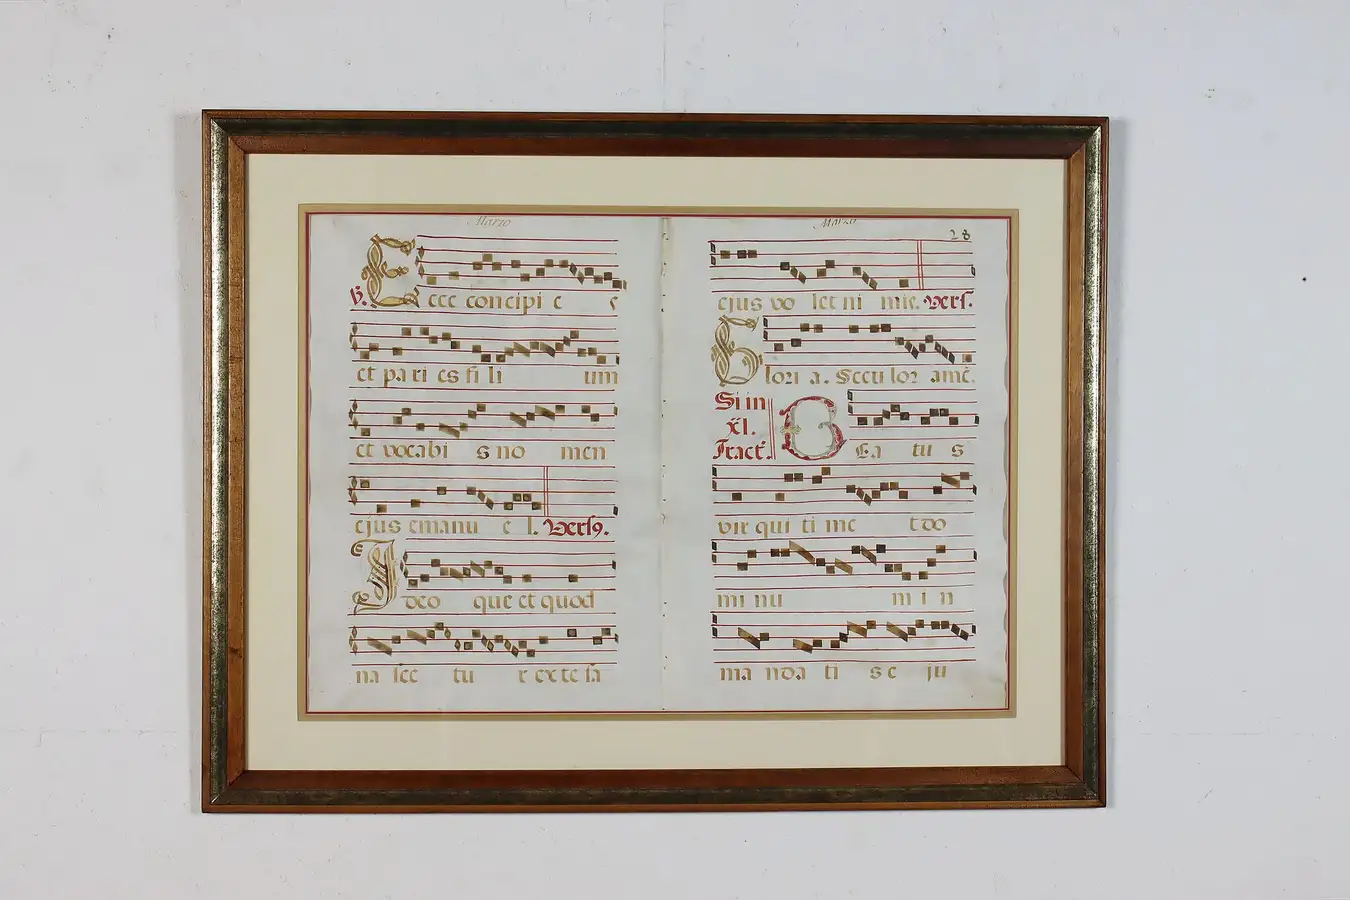 Marzo
℣. Ecce concipi e e
et pa ri es fi li um
et vocabi s no men
ejus emanu e l. Versꝯ.
Ideo que et quod
na sce tu r ex te sa
Marzo
28
ejus vo let ni mis. Vers.
Glori a. Seculor amē.
Si in
xl.
Tract.
BEa tu s
vir qui ti me t do
mi nu m i n
ma nda ti s e ju